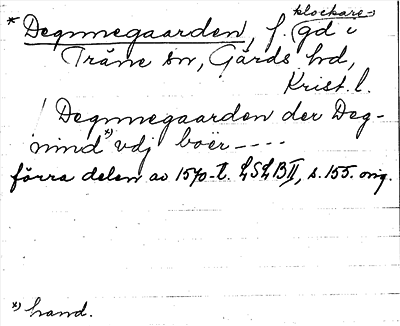 klockare-
* Degnnegaarden, f. gd i
Träne sn, Gärds hd,
Krist. l.
/ Degnnegaarden der Deg-
nind *) vdj boër ----
förra delen av 1570-t. LSLB II, s. 155. orig.
*) hand.